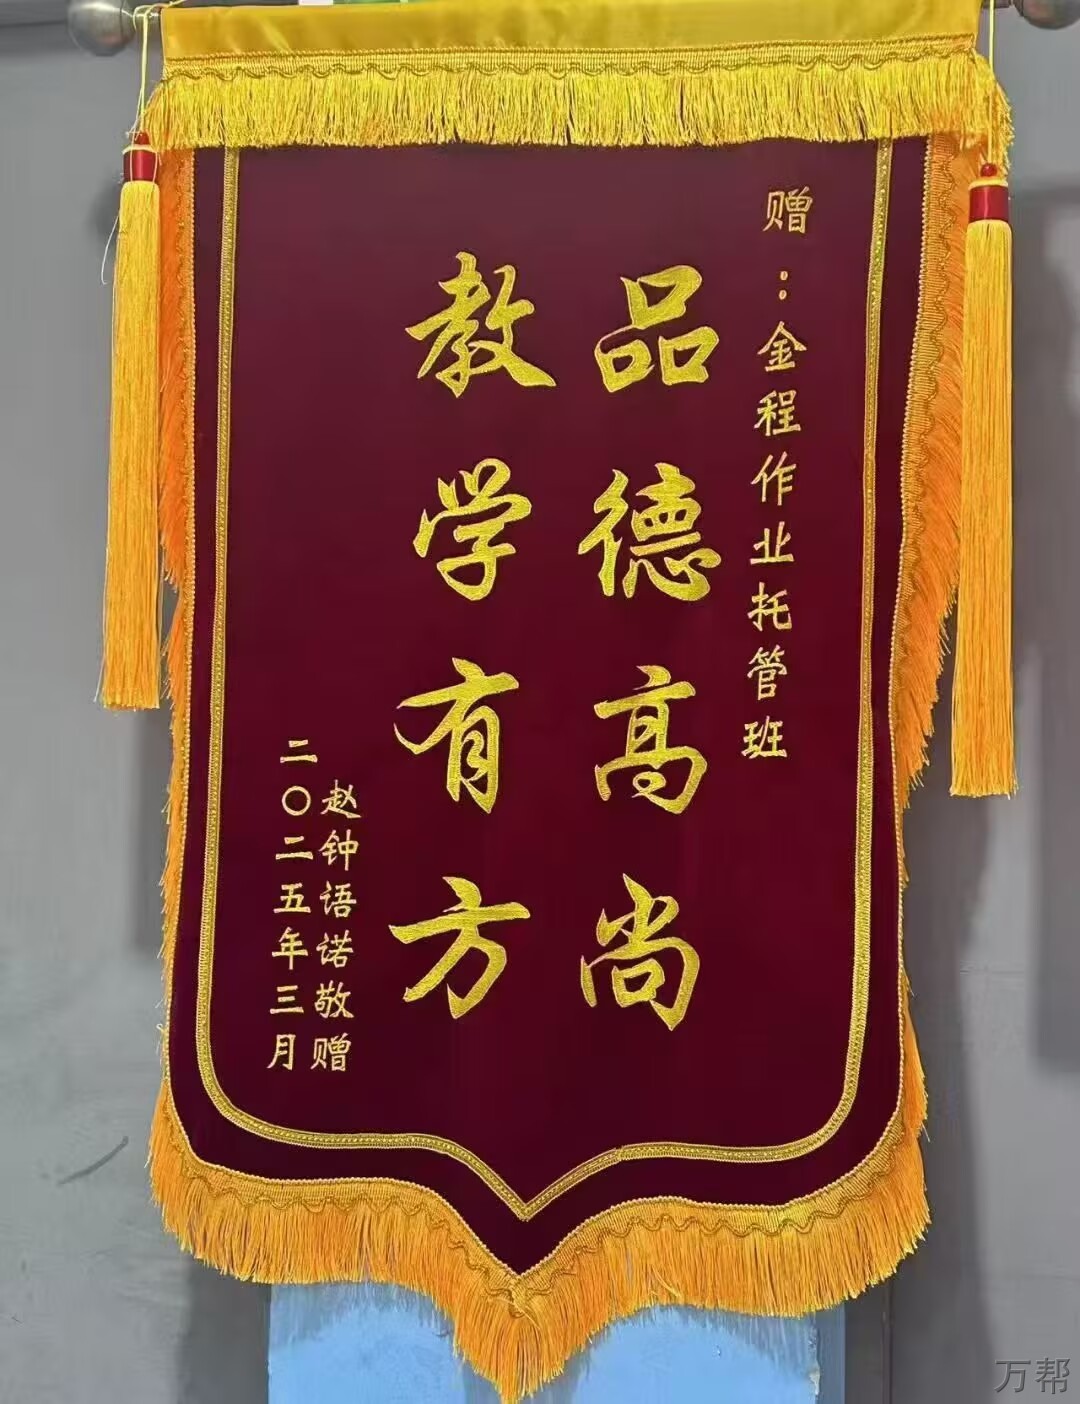 赠:金程作业托管班
品德高尚
教学有方
赵钟语诺敬赠
二〇二五年三月
万帮